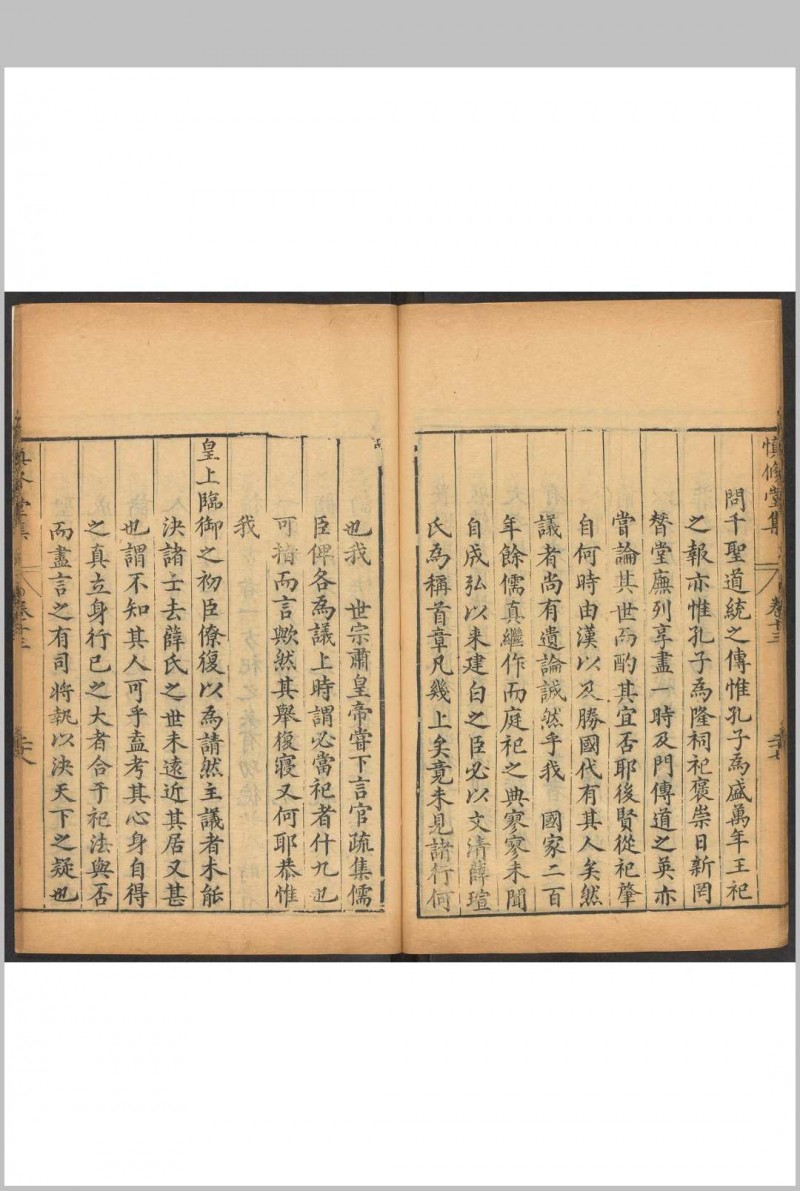 慎修堂集
卷十三
問千聖道統之傳惟孔子為盛萬年王祀
之報亦惟孔子為隆祠祀褒崇日新罔
替堂廡列享盡一時及門傳道之英亦
嘗論其世而酌其宜否耶後賢從祀肇
自何時由漢以及勝國代有其人矣然
議者尚有遺論誠然乎我　國家二百
年餘儒真繼作而庭祀之典寥寥未聞
自成弘以来建白之臣必以文清薛瑄
氏為稱首章凡幾上矣竟未見諸行何
也我　世宗肅皇帝嘗下言官疏集儒
臣俾各為議上時謂必當祀者什九也
可指而言歟然其舉復寢又何耶恭惟
我
皇上臨御之初臣僚復以為請然主議者未能
决諸士去薛氏之世未遠近其居又甚
也謂不知其人可乎盍考其心身自得
之真立身行已之大者合于祀法與否
而盡言之有司將執以决天下之疑也
卷十三